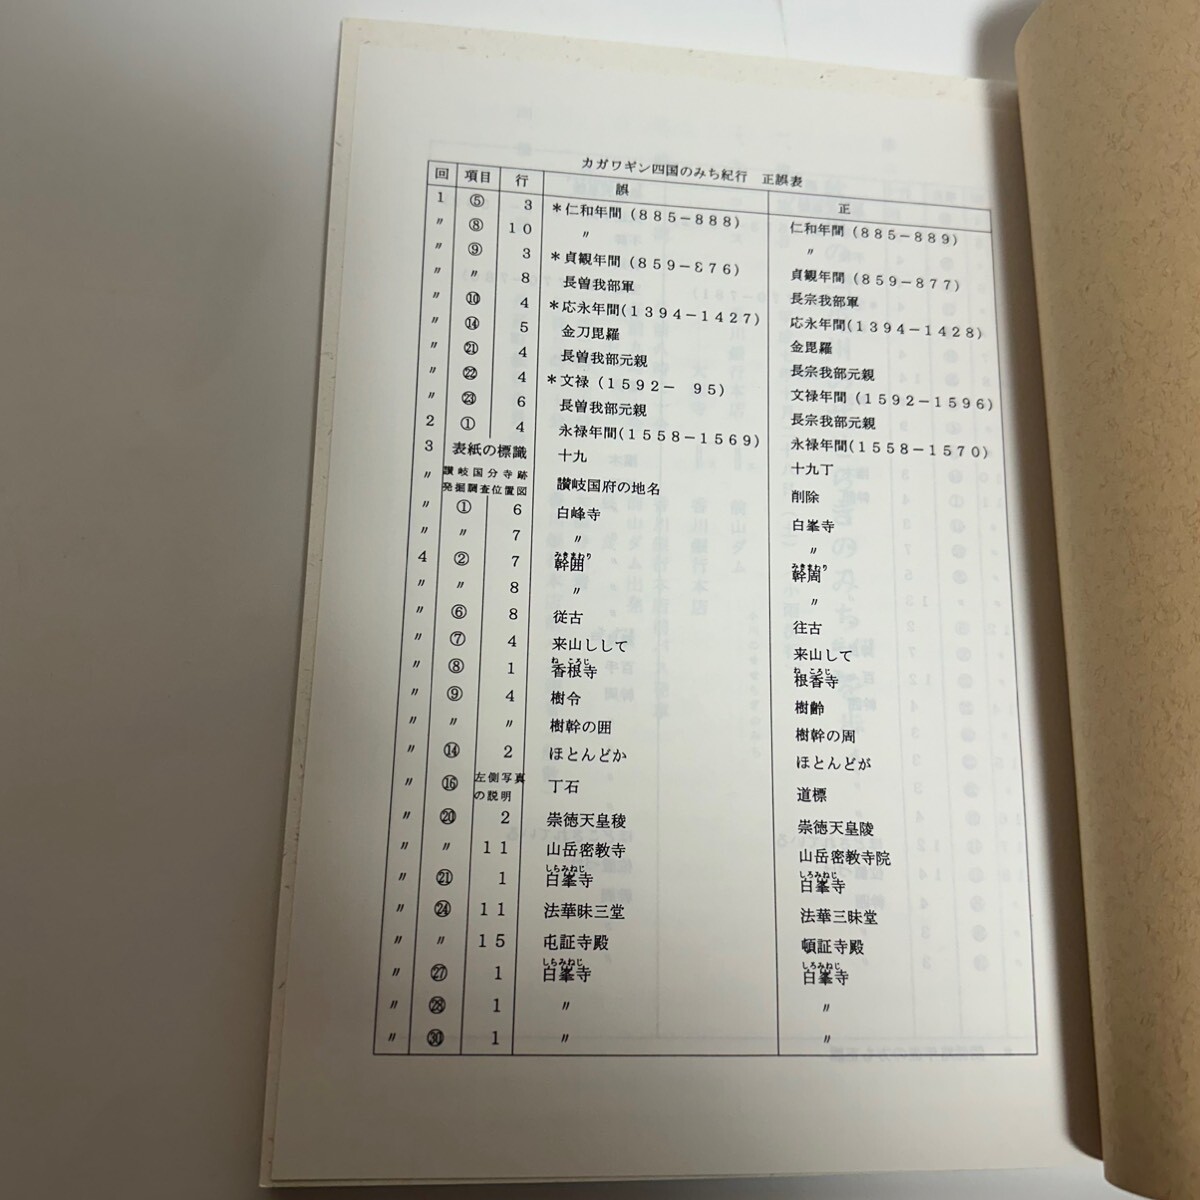 カガワギン四国のみち紀行 正誤表
回 項目 行 誤 正
1 ⑤ 3 *仁和年間(885-888) 仁和年間(885-889)
〃 ⑧ 10 〃 〃
〃 ⑨ 3 *貞観年間(859-876) 貞観年間(859-877)
〃 〃 8 長曽我部軍 長宗我部軍
〃 ⑩ 4 *応永年間(1394-1427) 応永年間(1394-1428)
〃 ⑭ 5 金刀毘羅 金毘羅
〃 ㉑ 4 長曽我部元親 長宗我部元親
〃 ㉒ 4 *文禄(1592- 95) 文禄年間(1592-1596)
〃 ㉓ 6 長曽我部元親 長宗我部元親
2 ① 4 永禄年間(1558-1569) 永禄年間(1558-1570)
3 表紙の標識 十九 十九丁
〃 讃岐国分寺跡発掘調査位置図 讃岐国府の地名 削除
〃 ① 6 白峰寺 白峯寺
〃 〃 7 〃 〃
4 ② 7 幹囲 幹周
〃 〃 8 〃 〃
〃 ⑥ 8 従古 往古
〃 ⑦ 4 来山しして 来山して
〃 ⑧ 1 香根寺 根香寺
〃 ⑨ 4 樹令 樹齢
〃 〃 〃 樹幹の囲 樹幹の周
〃 ⑭ 2 ほとんどか ほとんどが
〃 ⑯ 左側写真の説明 丁石 道標
〃 ⑳ 2 崇徳天皇稜 崇徳天皇陵
〃 〃 11 山岳密教寺 山岳密教寺院
〃 ㉑ 1 白峯寺(しらみねじ) 白峯寺(しろみねじ)
〃 ㉔ 11 法華昧三堂 法華三昧堂
〃 〃 15 屯証寺殿 頓証寺殿
〃 ㉗ 1 白峯寺(しらみねじ) 白峯寺(しろみねじ)
〃 ㉘ 1 〃 〃
〃 ㉚ 1 〃 〃